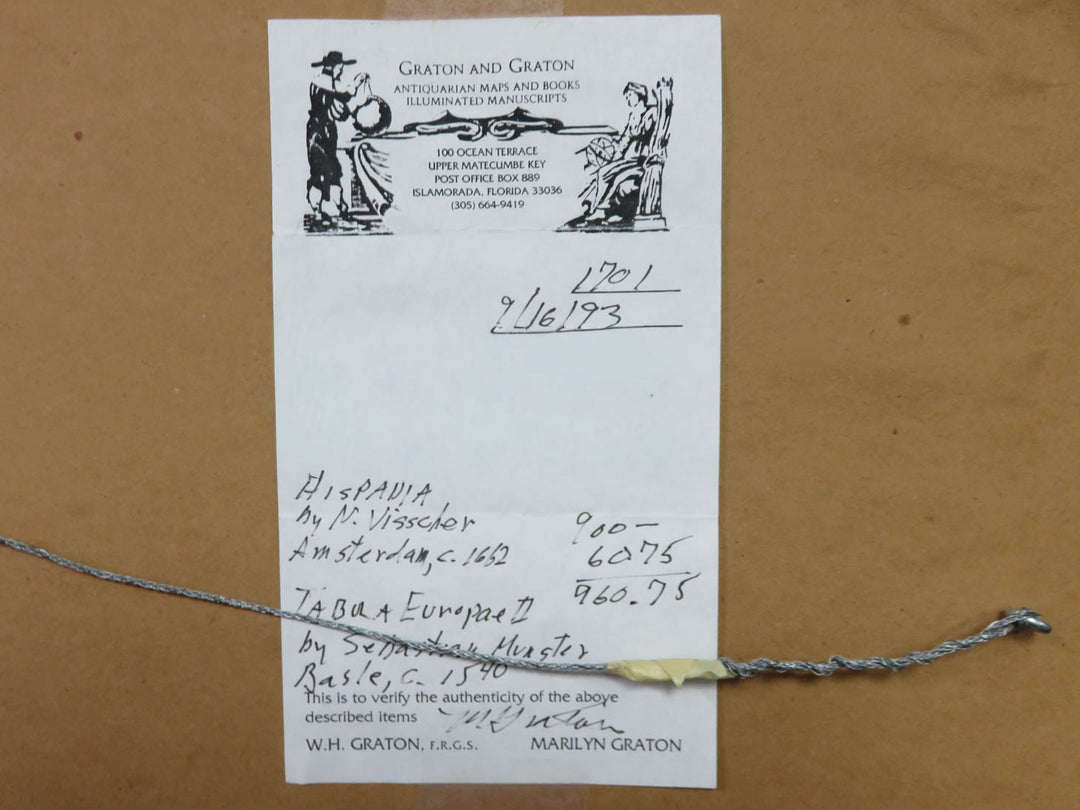 GRATON AND GRATON
ANTIQUARIAN MAPS AND BOOKS
ILLUMINATED MANUSCRIPTS
100 OCEAN TERRACE
UPPER MATECUMBE KEY
POST OFFICE BOX 889
ISLAMORADA, FLORIDA 33036
(305) 664-9419
1701
9/16/93
HISPANIA
by N. Visscher
900-
Amsterdam, c. 1652
6075
960.75
TABULA Europae II
by Sebastian Munster
Basle, c. 1540
This is to verify the authenticity of the above
described items M Graton
W.H. GRATON, F.R.G.S. MARILYN GRATON